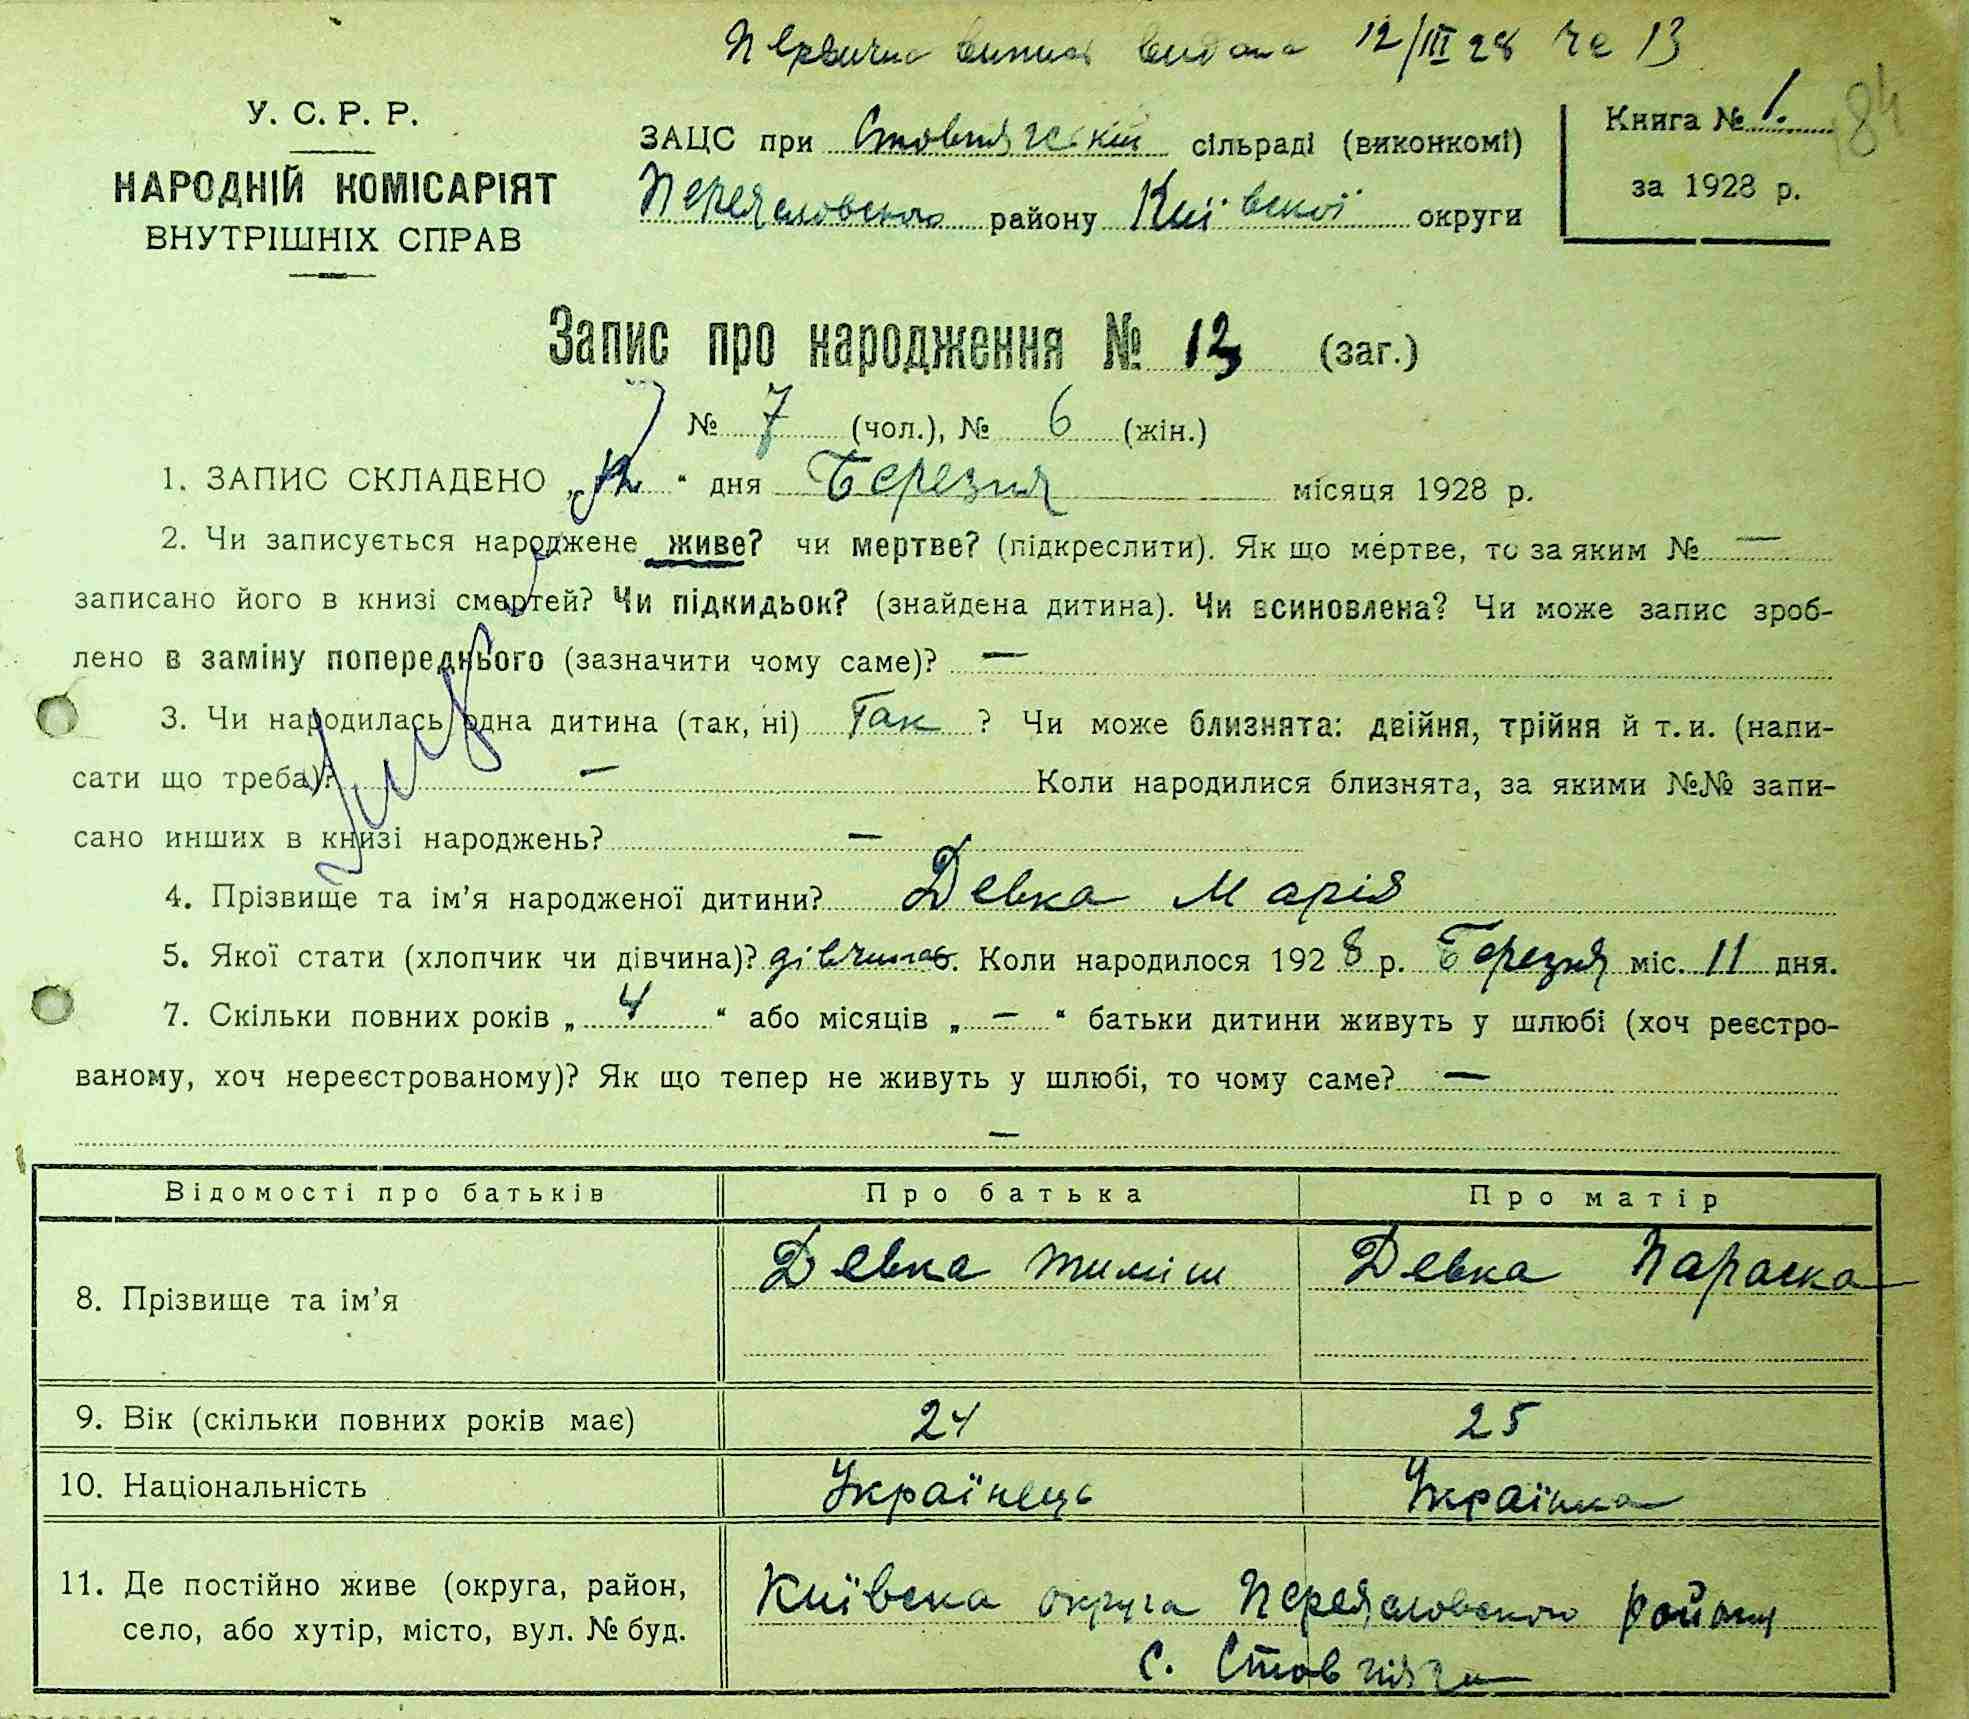 Первична випись видана 12/III 28 № 13
У. С. Р. Р.
НАРОДНІЙ КОМІСАРІЯТ
ВНУТРІШНІХ СПРАВ
ЗАЦС при Стовпязькій сільраді (виконкомі)
Переяславського району Київської округи
Книга № 1.
за 1928 р.
84
Запис про народження № 13 (заг.)
№ 7 (чол.), № 6 (жін.)
1. ЗАПИС СКЛАДЕНО „12“ дня Березня місяця 1928 р.
2. Чи записується народжене живе? чи мертве? (підкреслити). Як що мертве, то за яким № —
записано його в книзі смертей? Чи підкидьок? (знайдена дитина). Чи всиновлена? Чи може запис зроб-
лено в заміну попереднього (зазначити чому саме)? —
3. Чи народилась одна дитина (так, ні) Так ? Чи може близнята: двійня, трійня й т. и. (напи-
сати що треба)? — Коли народилися близнята, за якими №№ запи-
сано инших в книзі народжень? —
4. Прізвище та ім’я народженої дитини? Девка Марія
5. Якої стати (хлопчик чи дівчина)? дівчина. Коли народилося 1928 р. Березня міс. 11 дня.
7. Скільки повних років „ 4 “ або місяців „ — “ батьки дитини живуть у шлюбі (хоч реєстро-
ваному, хоч нереєстрованому)? Як що тепер не живуть у шлюбі, то чому саме? —
—
Відомості про батьків Про батька Про матір
8. Прізвище та ім’я Девка Тиміш Девка Параска
9. Вік (скільки повних років має) 24 25
10. Національність Українець Українка
11. Де постійно живе (округа, район, село, або хутір, місто, вул. № буд. Київська округа Переяславського району
с. Стовпяги